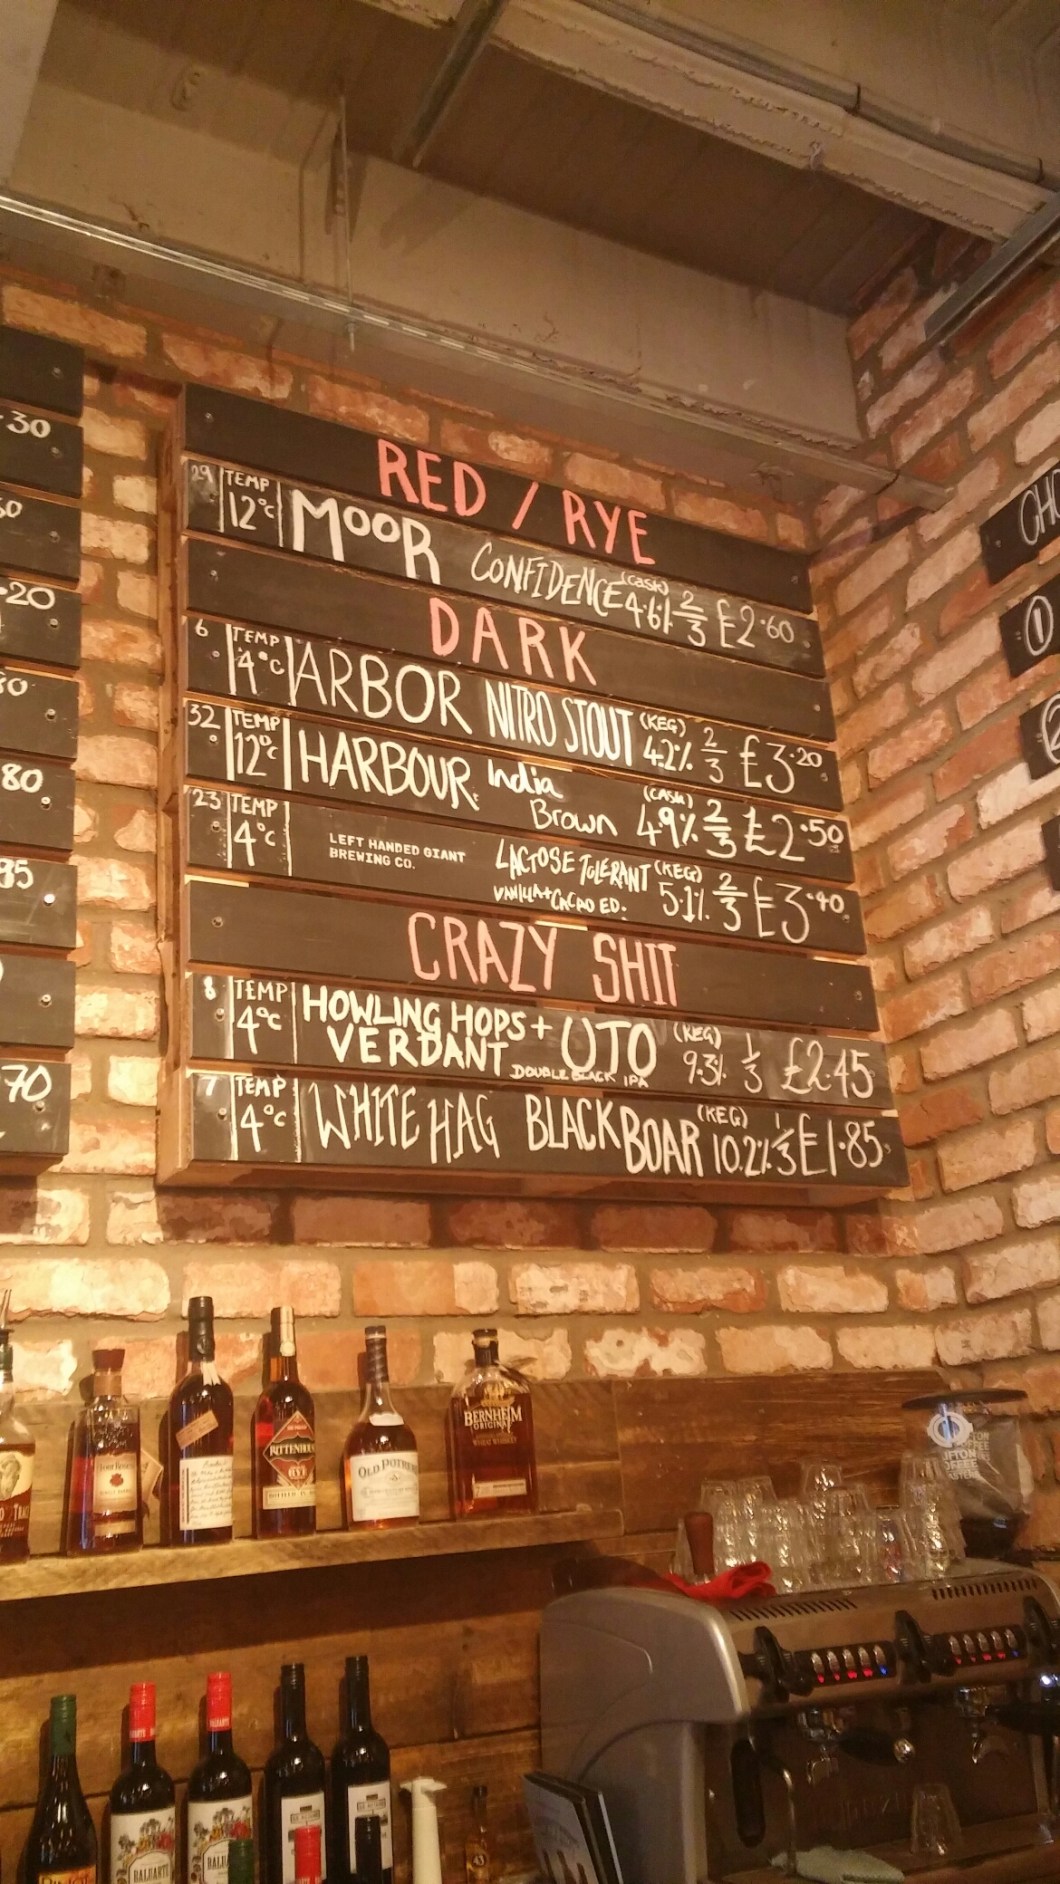 RED / RYE
29 TEMP 12°C MOOR CONFIDENCE (CASK) 4.6% 2/3 £2.60
DARK
6 TEMP 4°C ARBOR NITRO STOUT (KEG) 4.2% 2/3 £3.20
32 TEMP 12°C HARBOUR: India Brown (CASK) 4.9% 2/3 £2.50
23 TEMP 4°C LEFT HANDED GIANT BREWING CO. LACTOSE TOLERANT VANILLA + CACAO ED. (KEG) 5.1% 2/3 £3.40
CRAZY SHIT
8 TEMP 4°C HOWLING HOPS + VERDANT UTO DOUBLE BLACK IPA (KEG) 9.3% 1/3 £2.45
7 TEMP 4°C WHITE HAG BLACK BOAR (KEG) 10.2% 1/3 £1.85
.30
.20
80
95
70
CHO
BERNHEIM
ORIGINAL
WHEAT WHISKEY
RITTENHOUSE
Four Roses